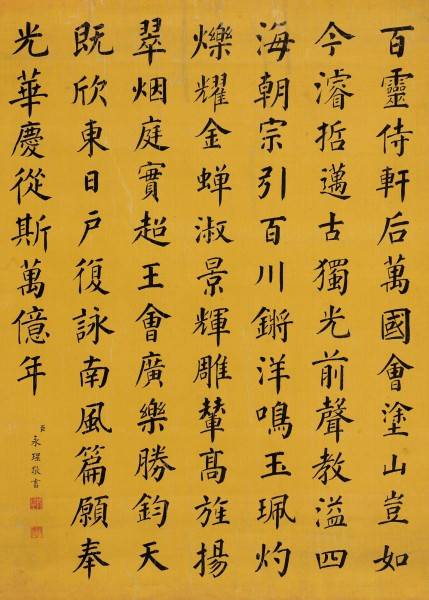 百靈侍軒后萬國會塗山豈如
今濬哲邁古獨光前聲教溢四
海朝宗引百川鏘洋鳴玉珮灼
爍耀金蟬淑景輝雕輦髙旌揚
翠烟庭實超王會廣樂勝鈞天
既欣東日戶復詠南風篇願奉
光華慶從斯萬億年
臣永瑆敬書